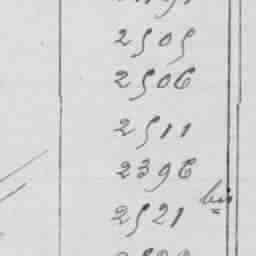 2505
2506
2511
2396
2521 bis